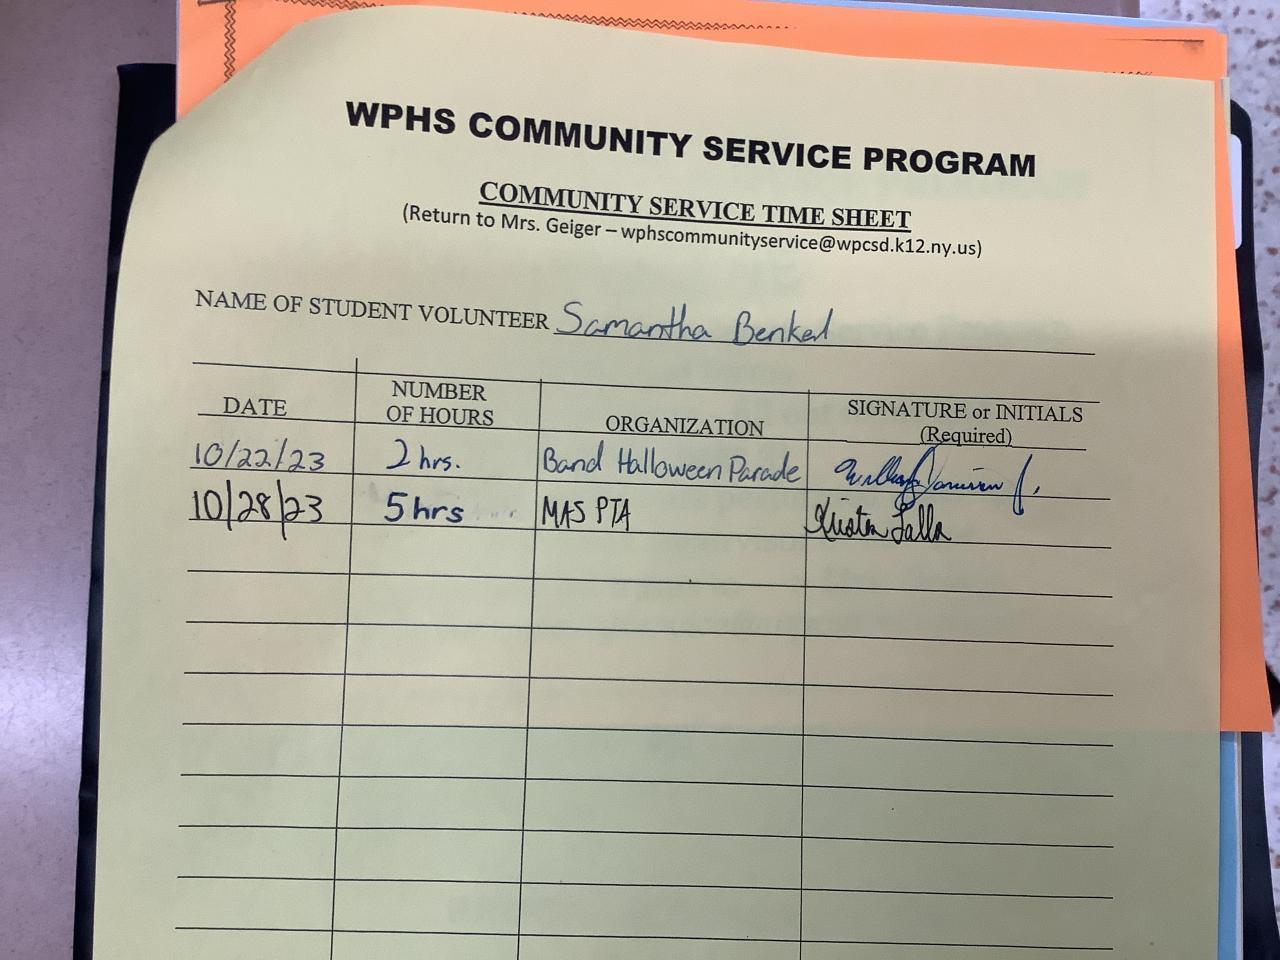 WPHS COMMUNITY SERVICE PROGRAM
COMMUNITY SERVICE TIME SHEET
(Return to Mrs. Geiger – wphscommunityservice@wpcsd.k12.ny.us)
NAME OF STUDENT VOLUNTEER Samantha Benkel
DATE NUMBER OF HOURS ORGANIZATION SIGNATURE or INITIALS (Required)
10/22/23 2 hrs. Band Halloween Parade
10/28/23 5 hrs MAS PTA